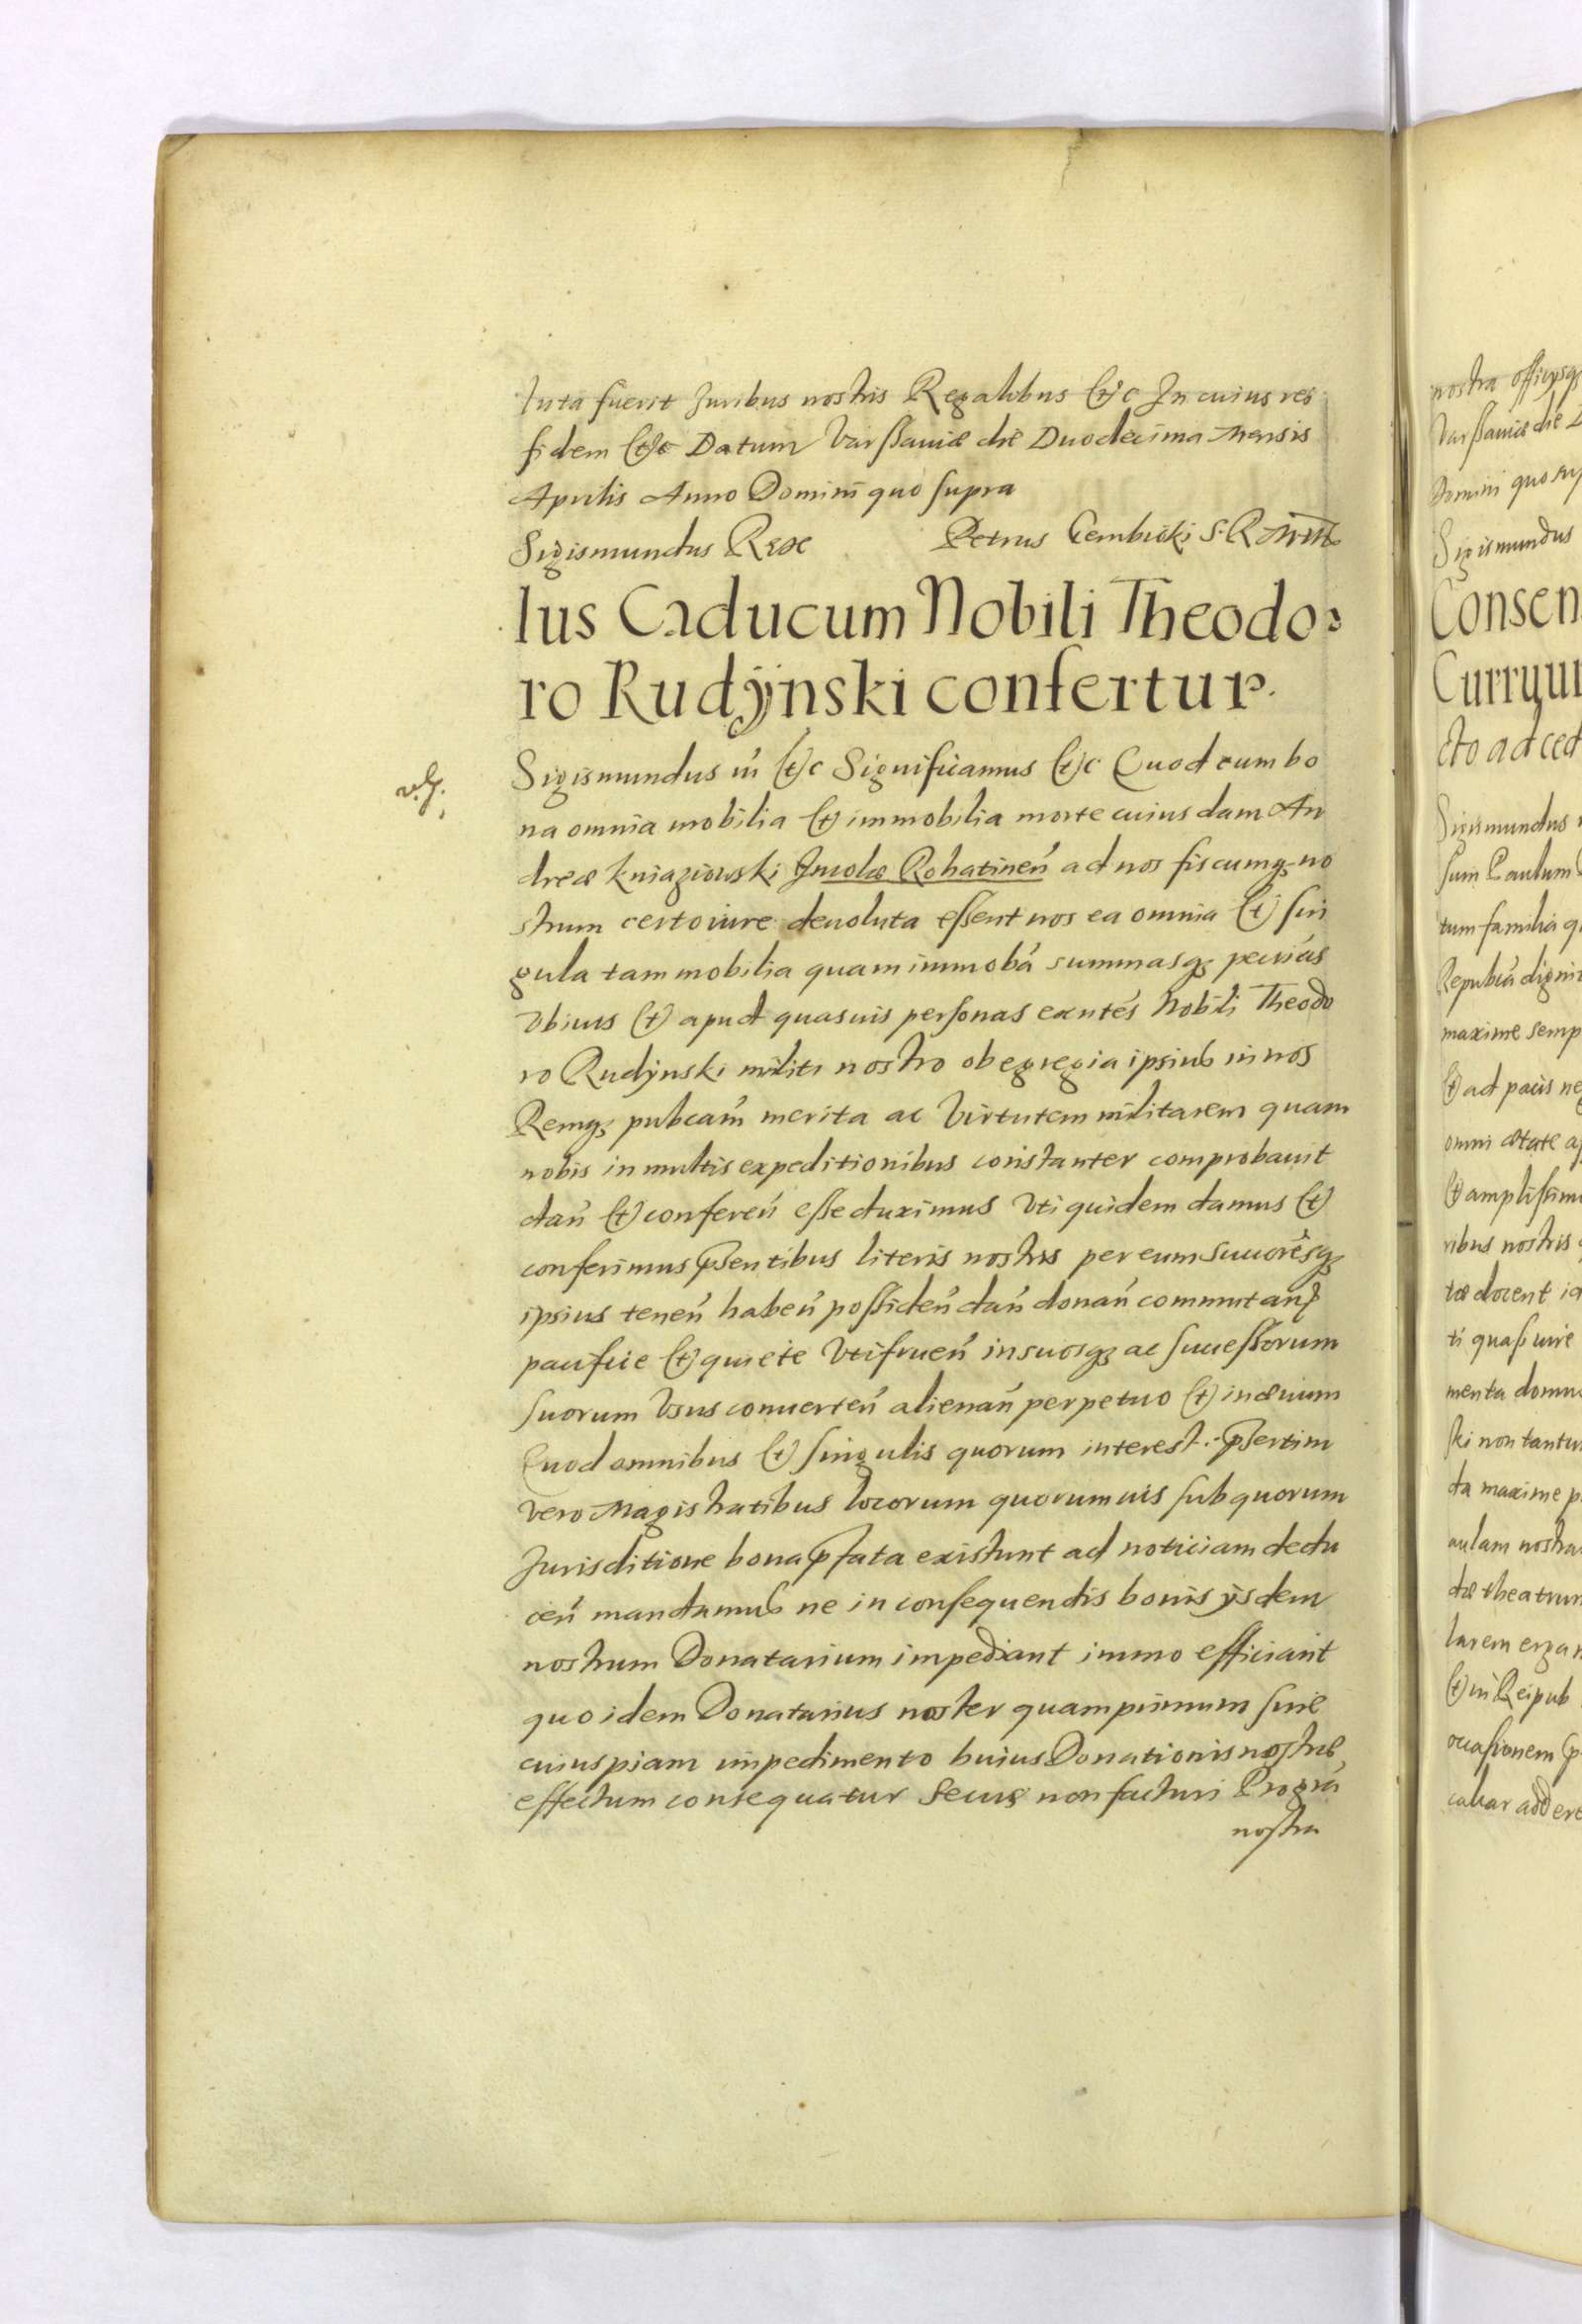 luta fuerit Juribus nostris Regalibus &c In cuius rei
fidem &c Datum Varssauiæ die Duodecima Mensis
Aprilis Anno Domini quo supra
Sigismundus Rex Petrus Gembicki S. R.
Ius Caducum Nobili Theodo:
ro Rudÿnski confertur.
Sigismundus iii &c Significamus &c Quod cum bo
na omnia mobilia & immobilia morte cuiusdam An
dreæ Kniaziowski Incolæ Rohatineń ad nos fiscumq; no
strum certo iure deuoluta essent nos ea omnia & sin
gula tam mobilia quam immobá summasq; pecúias
vbiuis & apud quasuis personas exntés Nobili Theodo
ro Rudÿnski militi nostro ob egregia ipsius in nos
Remq; pubcam merita ac Virtutem militarem quam
nobis in multis expeditionibus constanter comprobauit
dań & confereń esse duximus Vti quidem damus &
conferimus pñsentibus literis nostris per eum succorésq;
ipsius teneń habeń possideń dań donań commutań
pacifice & quiete Vtifrueń in suosq; ac successorum
suorum Vsus conuerteń alienań perpetuo & in æuium
Quod omnibus & singulis quorum interest pserti​m
vero Magistratibus locorum quorumuis sub quorum
Jurisditione bona pfata existunt ad noticiam dedu
ceń mandamus ne in consequendis bonis ÿsdem
nostrum Donatarium impediant immo efficiant
quo idem Donatarius noster quamprimum sine
cuiuspiam impedimento huius Donationis nostræ
effectum consequatur Secus non facturi Pro grá
nostra
nostra officÿsq;
Varssauiæ die D
Domini quo sup
Sigismundus
Consen
Curryu
cto ad ced
Sigismundus
sum Paulum
tum familia q
Repubcá digni
maxime semp
& ad pacis ne
omni ætate a
& amplissim
ribus nostris
tæ docent ia
ti quas uire
menta domu
ski non tantu
ta maxime p
aulam nostra
dæ theatrum
larem erga n
& in Reipub
occasionem
cabar addere